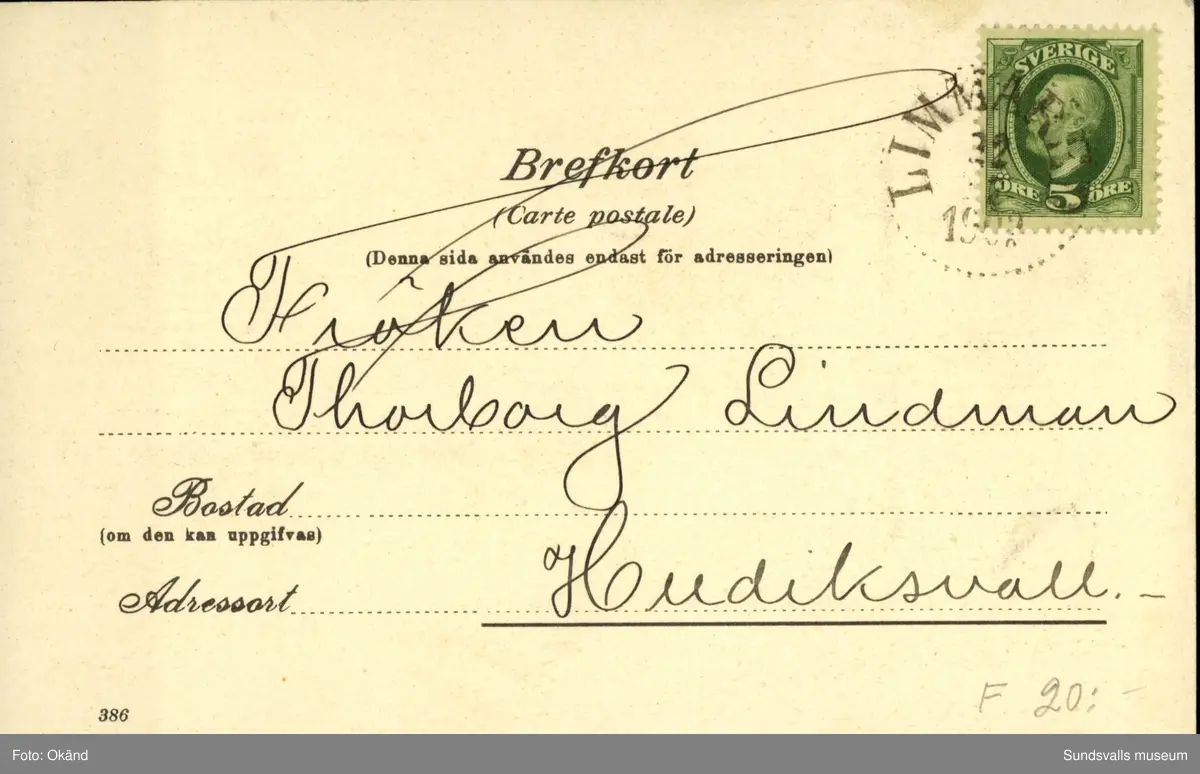 SVERIGE
ÖRE 5 ÖRE
Brefkort
(Carte postale)
(Denna sida användes endast för adresseringen)
Fröken
Thorborg Lindman
Bostad
(om den kan uppgifvas)
Hudiksvall.-
Adressort
F 20:-
386
Foto: Okänd
Sundsvalls museum